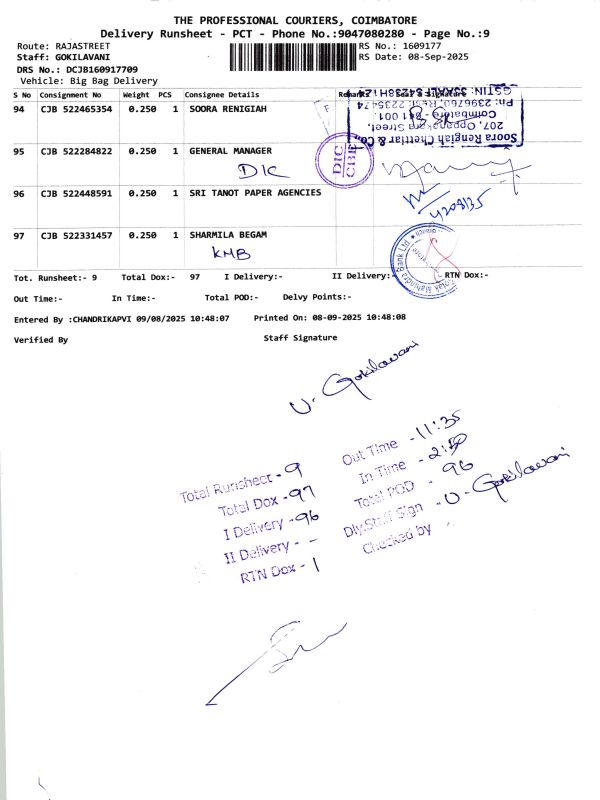 THE PROFESSIONAL COURIERS, COIMBATORE
Delivery Runsheet - PCT - Phone No.:9047080280 - Page No.:9
Route: RAJASTREET
RS No.: 1609177
Staff: GOKILAVANI
RS Date: 08-Sep-2025
DRS No.: DCJB160917709
Vehicle: Big Bag Delivery
S No Consignment No Weight PCS Consignee Details Remarks Seal & Signature
94 CJB 522465354 0.250 1 SOORA RENIGIAH
Soora Rengiah Chettiar & Co.,
207, Oppanakara Street,
Coimbatore - 641 001.
95 CJB 522284822 0.250 1 GENERAL MANAGER
DIC
DIC
CBE
96 CJB 522448591 0.250 1 SRI TANOT PAPER AGENCIES
97 CJB 522331457 0.250 1 SHARMILA BEGAM
KMB
Kotak Mahindra Bank Ltd
Tot. Runsheet:- 9 Total Dox:- 97 I Delivery:- II Delivery:- RTN Dox:-
Out Time:- In Time:- Total POD:- Delvy Points:-
Entered By :CHANDRIKAPVI 09/08/2025 10:48:07 Printed On: 08-09-2025 10:48:08
Verified By Staff Signature
U. Gokilavani
Total Runsheet - 9
Total Dox - 97
I Delivery - 96
II Delivery - -
RTN Dox - 1
Out Time - 11:35
In Time - 2:50
Total POD - 96
Dly.Staff Sign - U. Gokilavani
Checked by